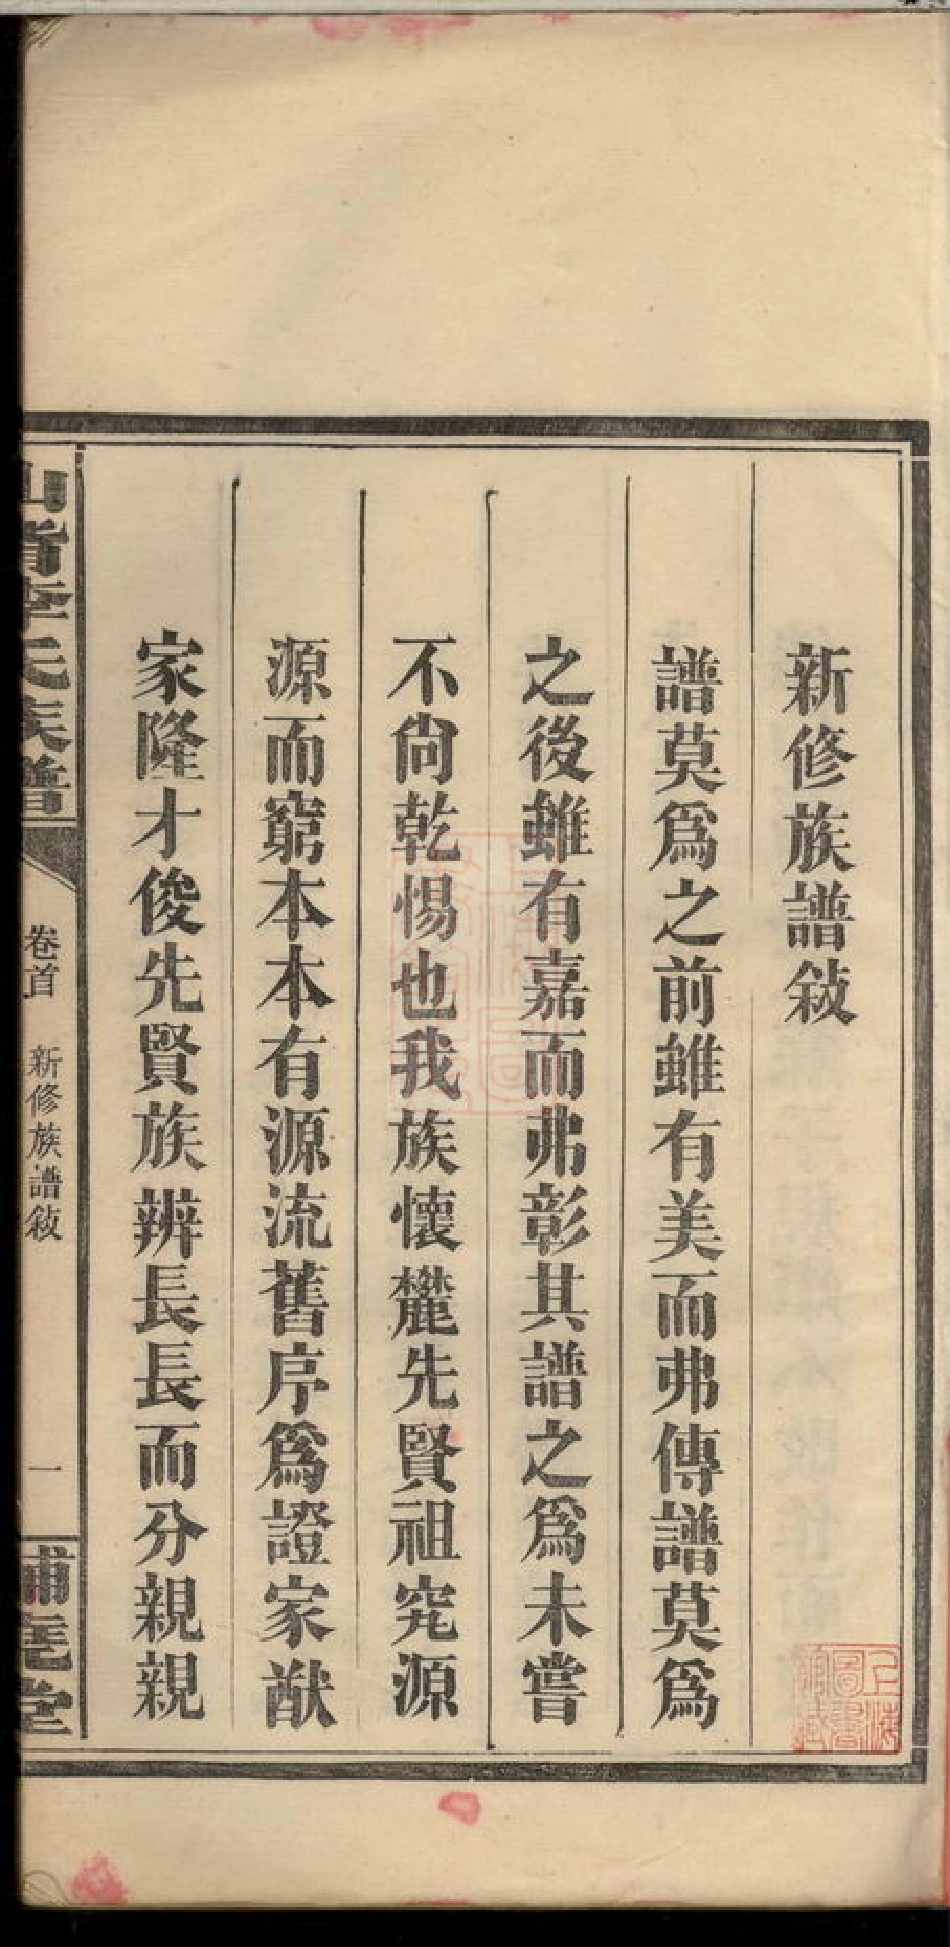 新修族譜敍
譜莫爲之前雖有美而弗傳譜莫爲
之後雖有嘉而弗彰其譜之爲未嘗
不尙乾惕也我族懷麓先賢祖究源
源而窮本本有源流舊序爲證家猷
家隆才俊先賢族辨長長而分親親
李氏族譜
卷首
新修族譜敍
一
堂
上海
圖書
館藏